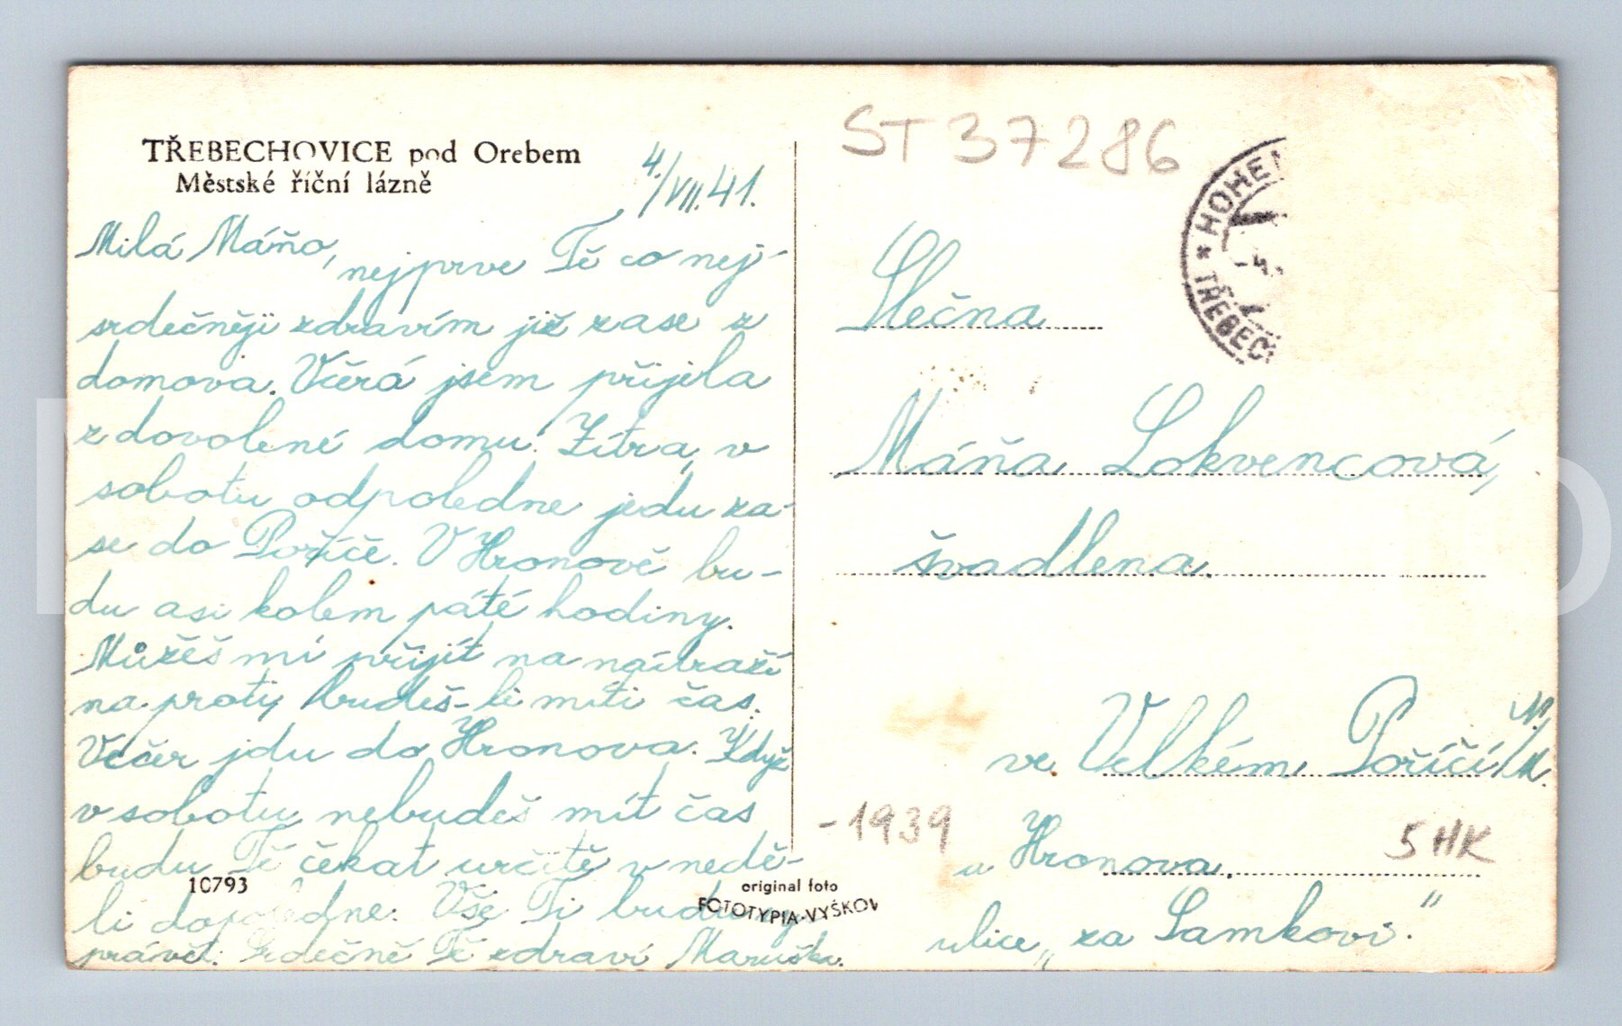 TŘEBECHOVICE pod Orebem
Městské říční lázně
4./VII.41.
Milá Máňo,
nejprve Tě co nej-
srdečněji zdravím již zase z
domova. Včera jsem přijela
z dovolené domu. Zítra v
sobotu odpoledne jedu za-
se do Poříčě. V Hronově bu-
du asi kolem páté hodiny.
Můžeš mi přijít na nádraží
na proty budeš-li míti čas.
Večer jdu do Hronova. Když
v sobotu nebudeš mít čas
budu Tě čekat určitě v nedě-
li dopoledne. Vše Ti budu
právět. Srdečně Tě zdraví Maruška.
10793
original foto
FOTOTYPIA-VYŠKOV
ST 37286
HOHEN
-4.
* TŘEBEC
Slečna
Máňa Lokvencová,
švadlena.
ve Velkém Poříčí N/M.
-1939
u Hronova.
5 HK
ulice „za Samkovi."